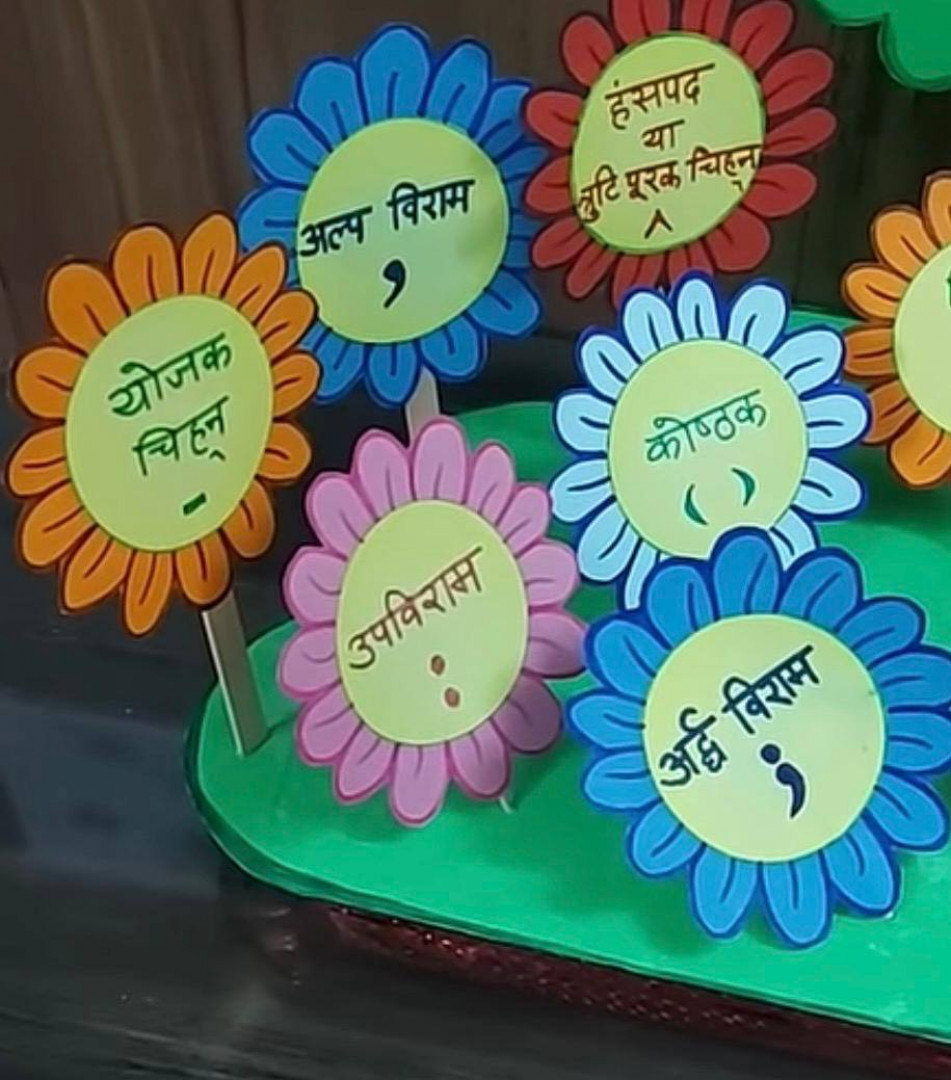 हंसपद
या
त्रुटि पूरक चिह्न
^
अल्प विराम
,
योजक
चिह्न
-
कोष्ठक
( )
उपविराम
:
अर्द्ध विराम
;